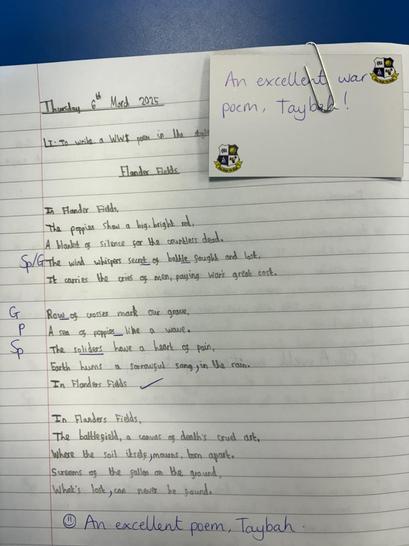 An excellent war
poem, Taybah!
Thursday 6th March 2025
LI: To write a WW1 poem in the style
Flander Fields
In Flander Fields,
The poppies show a big, bright red,
A blanket of silence for the countless dead.
Sp/G The wind whispers secret of battle fought and lost,
It carries the cries of men, paying war's great cost.
G Row of crosses mark our grave,
P A sea of poppies like a wave.
Sp The soliders have a heart of pain,
Earth hums a sorrowful song, in the rain.
In Flanders Fields
In Flanders Fields,
The battlefield, a canvas of death's cruel art,
Where the soil itself, mourns, torn apart.
Screams of the fallen on the ground,
What's lost, can never be found.
An excellent poem, Taybah.